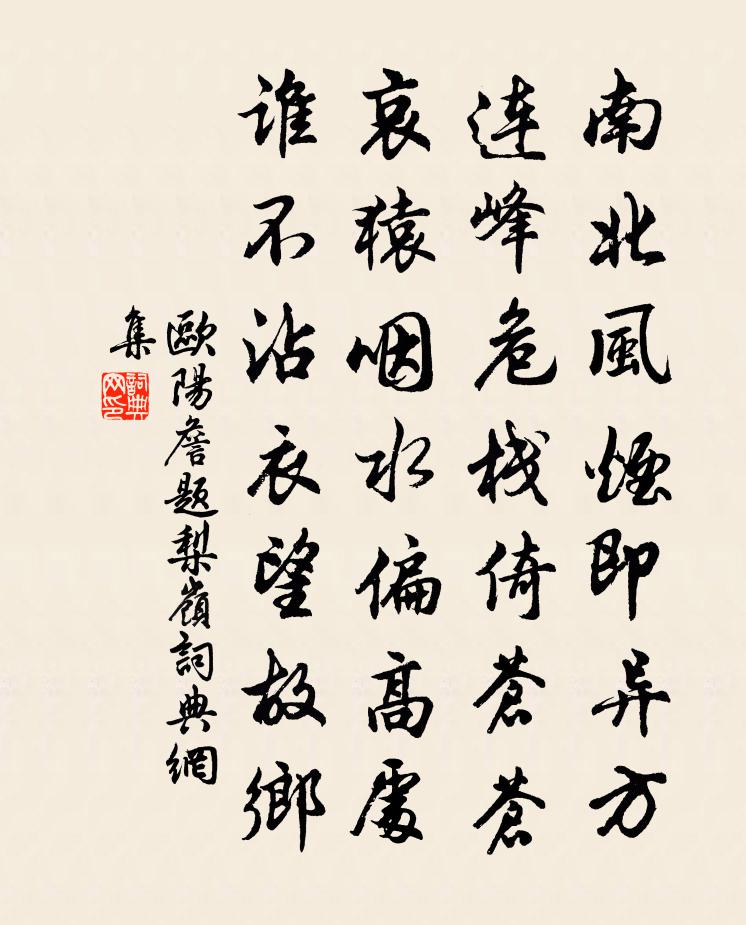 南北風煙即异方
連峰危棧倚蒼蒼
哀猿咽水偏高處
誰不沾衣望故鄉
歐陽詹題梨嶺詞典網
集
詞典
网印